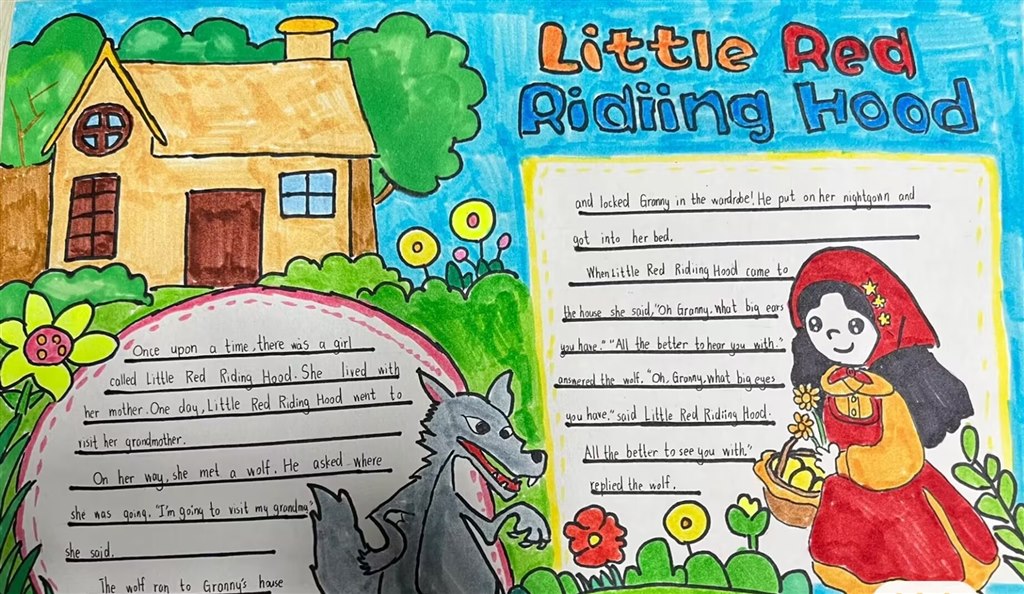 Little Red
Ridiing Hood
Once upon a time, there was a girl
called Little Red Riding Hood. She lived with
her mother. One day, Little Red Riding Hood went to
visit her grandmother.
On her way, she met a wolf. He asked where
she was going. "I'm going to visit my grandma"
she said.
The wolf ran to Granny's house
and locked Granny in the wardrobe! He put on her nightgown and
got into her bed.
When Little Red Ridiing Hood came to
the house she said, "Oh Granny. What big ears
you have." "All the better to hear you with."
answered the wolf. "Oh, Granny, what big eyes
you have." said Little Red Ridiing Hood.
All the better to see you with."
replied the wolf.